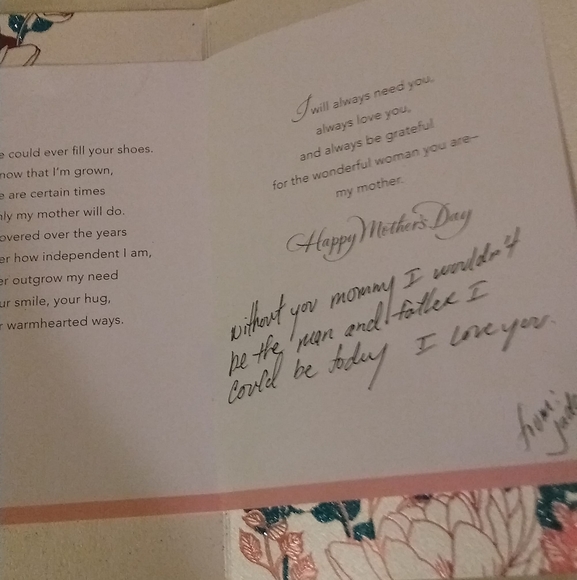 e could ever fill your shoes.
now that I'm grown,
e are certain times
nly my mother will do.
overed over the years
er how independent I am,
er outgrow my need
ur smile, your hug,
r warmhearted ways.
I will always need you,
always love you,
and always be grateful
for the wonderful woman you are—
my mother.
Happy Mother's Day
without you mommy I wouldn't
be the man and father I
could be today I love you.
from: